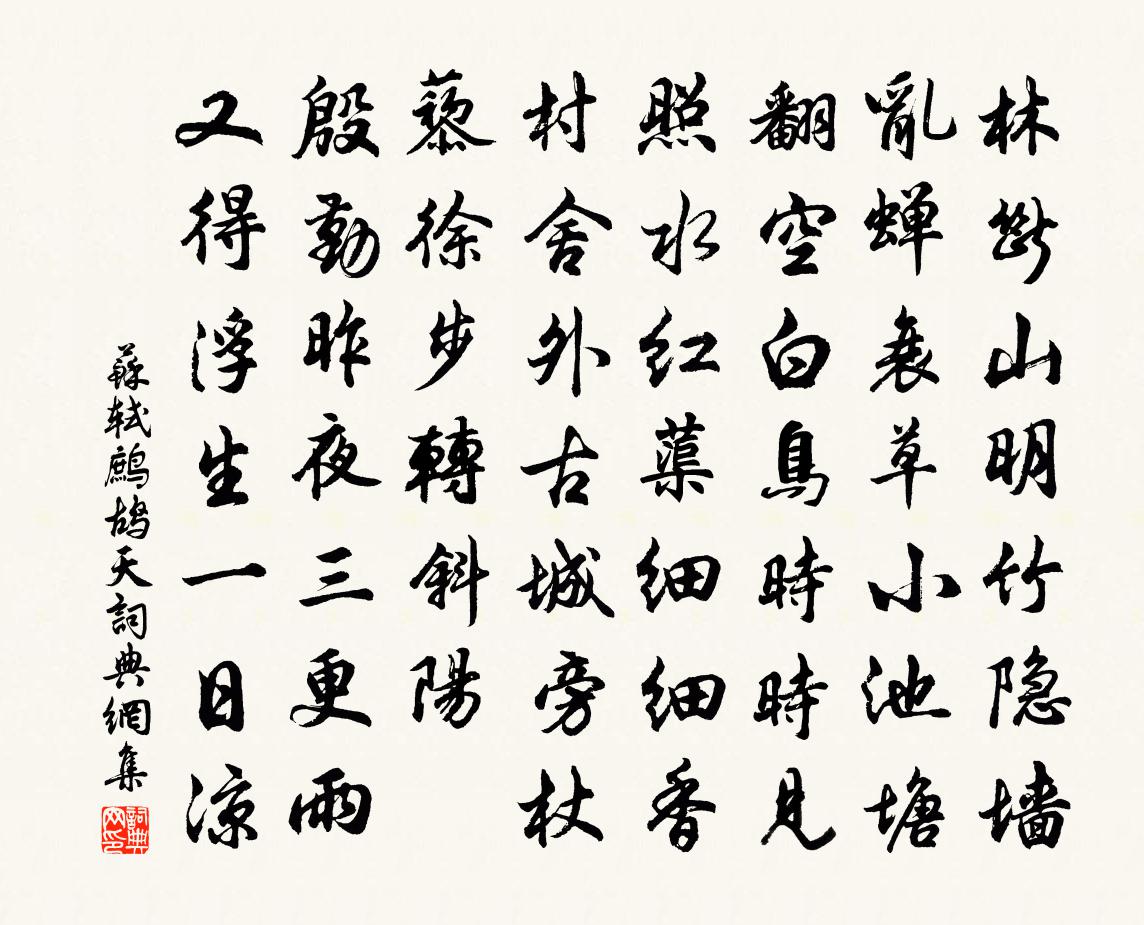 林斷山明竹隐墙
亂蟬衰草小池塘
翻空白鳥時時見
照水红蕖细细香
村舍外古城旁杖
藜徐步轉斜陽
殷勤昨夜三更雨
又得浮生一日凉
蘇軾鷓鴣天詞典網集
詞典网印